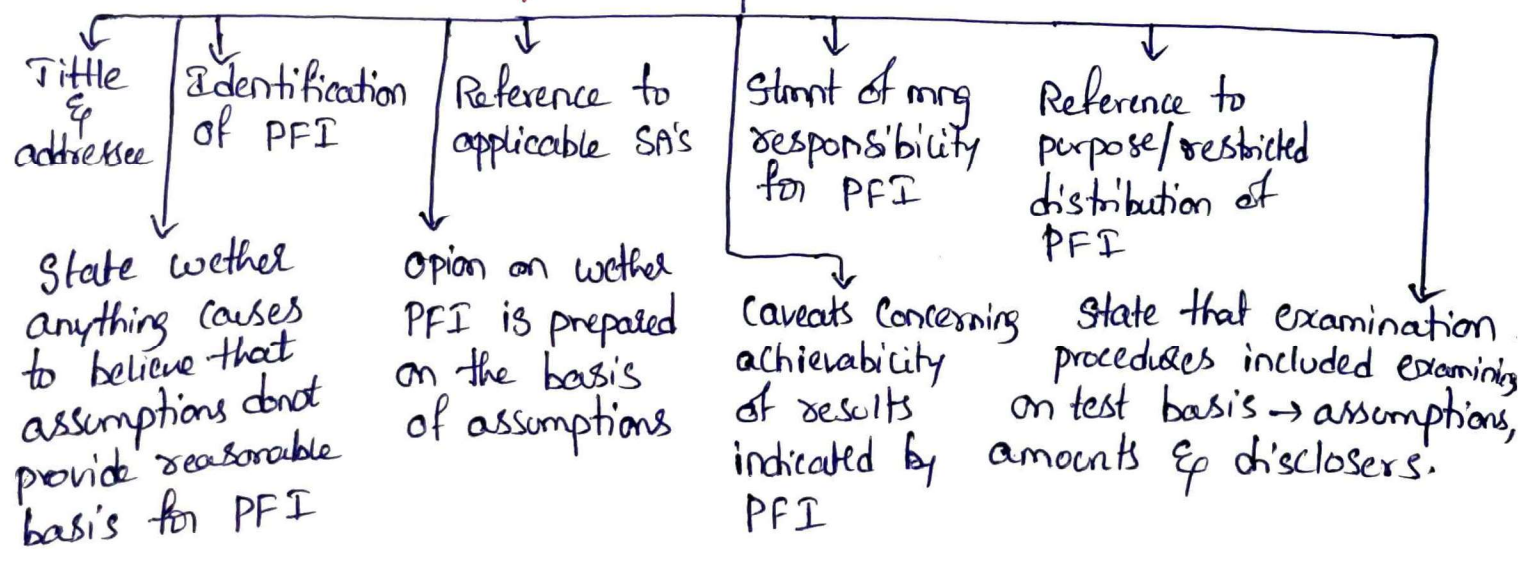 Tittle
&
addressee
Identification
of PFI
Reference to
applicable SA's
Stmnt of mrg
responsibility
for PFI
Reference to
purpose/restricted
distribution of
PFI
State wether
anything causes
to believe that
assumptions donot
provide reasonable
basis for PFI
Opion on wether
PFI is prepared
on the basis
of assumptions
Caveats Concerning
achievability
of results
indicated by
PFI
State that examination
procedures included examining
on test basis → assumptions,
amounts & disclosers.